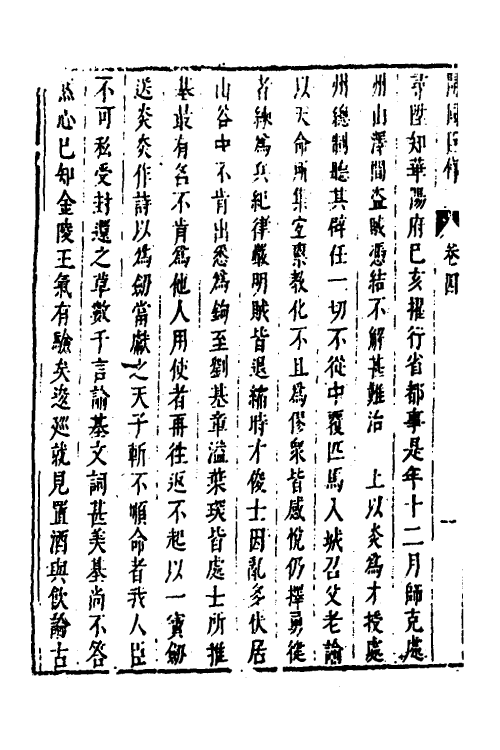 卷四
尋陞知華陽府已亥擢行省都事是年十二月師克處
州山澤間盜賊憑結不解甚難治　上以炎為才授處
州總制聽其辟任一切不從中覆匹馬入城召父老諭
以天命所集宜稟教化不且為僇衆皆感悅仍擇勇徒
者練為兵紀律嚴明賊皆退縮時才俊士因亂多伏居
山谷中不肯出悉為鉤至劉基章溢葉琛皆處士所推
基最有名不肯爲他人用使者再往返不起以一寶劒
送炎炎作詩以爲劒當獻之天子斬不順命者我人臣
不可私受封還之草數千言諭基文詞甚美基尚不答
然心已知金陵王氣有驗矣逡廵就見置酒與飲論古